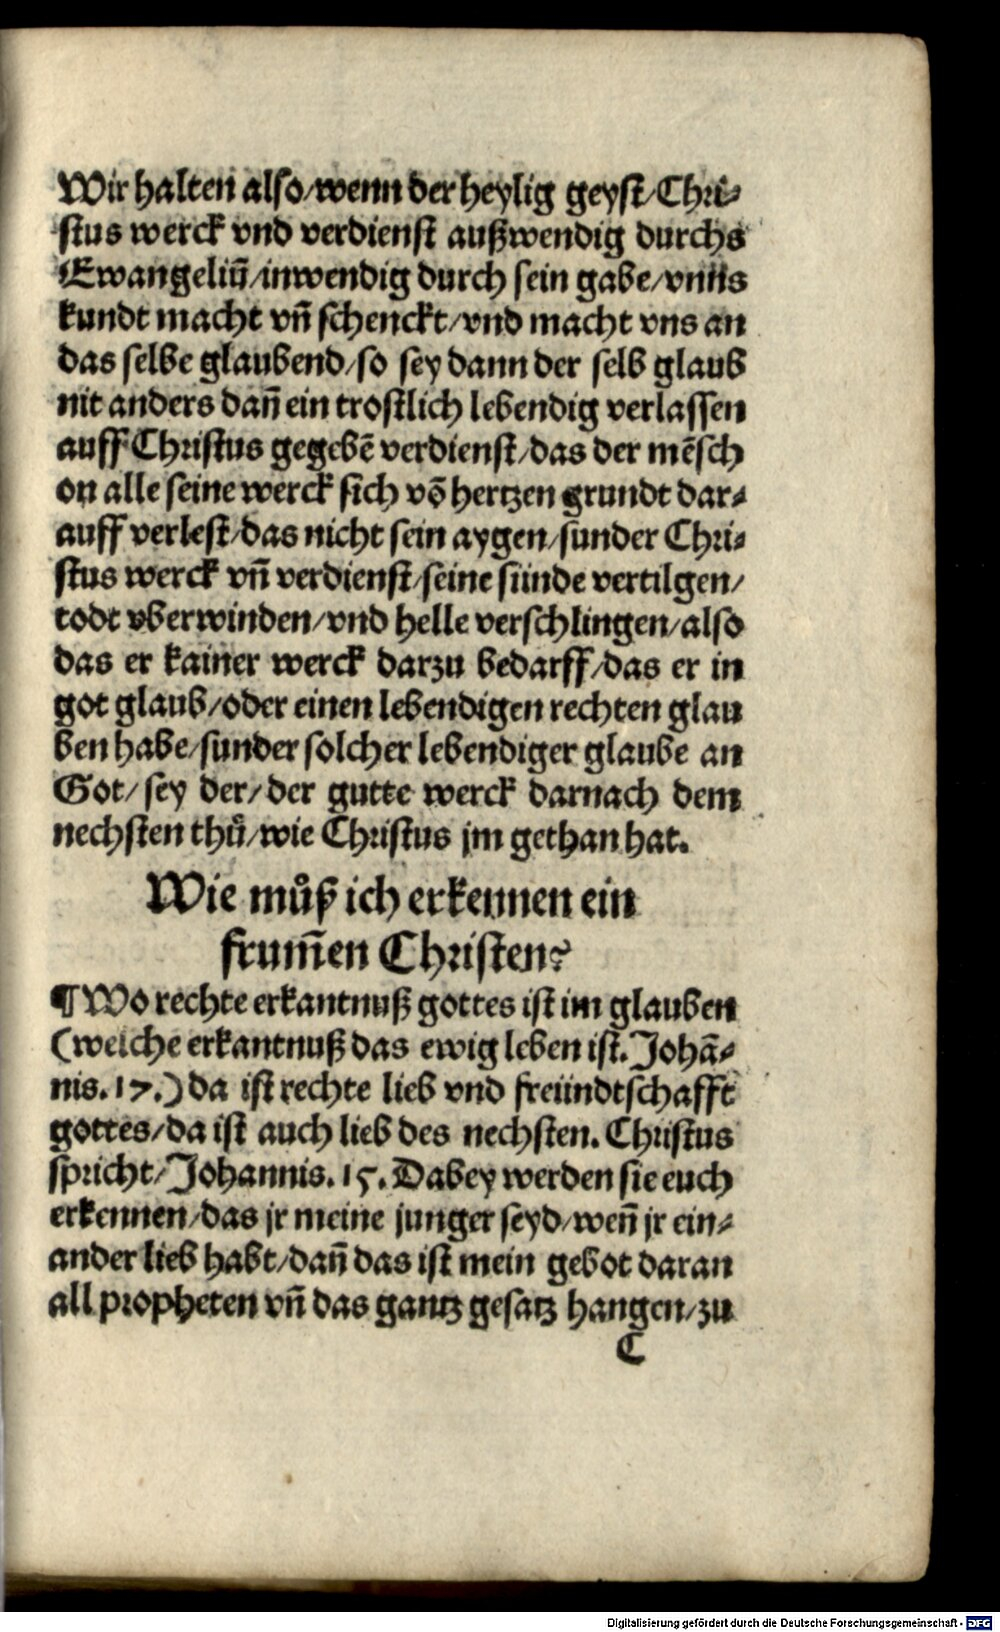 Wir halten also/wenn der heylig geyst/Chri-
stus werck vnd verdienst außwendig durchs
Ewangeliū/inwendig durch sein gabe/vnns
kundt macht vñ schenckt/vnd macht vns an
das selbe glaubend/so sey dann der selb glaub
nit anders dañ ein trostlich lebendig verlassen
auff Christus gegebē verdienst/das der mēsch
on alle seine werck sich võ hertzen grundt dar-
auff verlest/das nicht sein aygen/sunder Chri-
stus werck vñ verdienst/seine sünde vertilgen/
todt vberwinden/vnd helle verschlingen/also
das er kainer werck darzu bedarff/das er in
got glaub/oder einen lebendigen rechten glau
ben habe/sunder solcher lebendiger glaube an
Got/ sey der/ der gutte werck darnach dem
nechsten thů/wie Christus jm gethan hat.
Wie můß ich erkennen ein
frum̃en Christen?
¶ Wo rechte erkantnuß gottes ist im glauben
(welche erkantnuß das ewig leben ist. Johā-
nis. 17.) da ist rechte lieb vnd freündtschafft
gottes/da ist auch lieb des nechsten. Christus
spricht/Johannis. 15. Dabey werden sie euch
erkennen/das jr meine junger seyd/weñ jr ein-
ander lieb habt/dañ das ist mein gebot daran
all propheten vñ das gantz gesatz hangen/zu
C
Digitalisierung gefördert durch die Deutsche Forschungsgemeinschaft - DFG